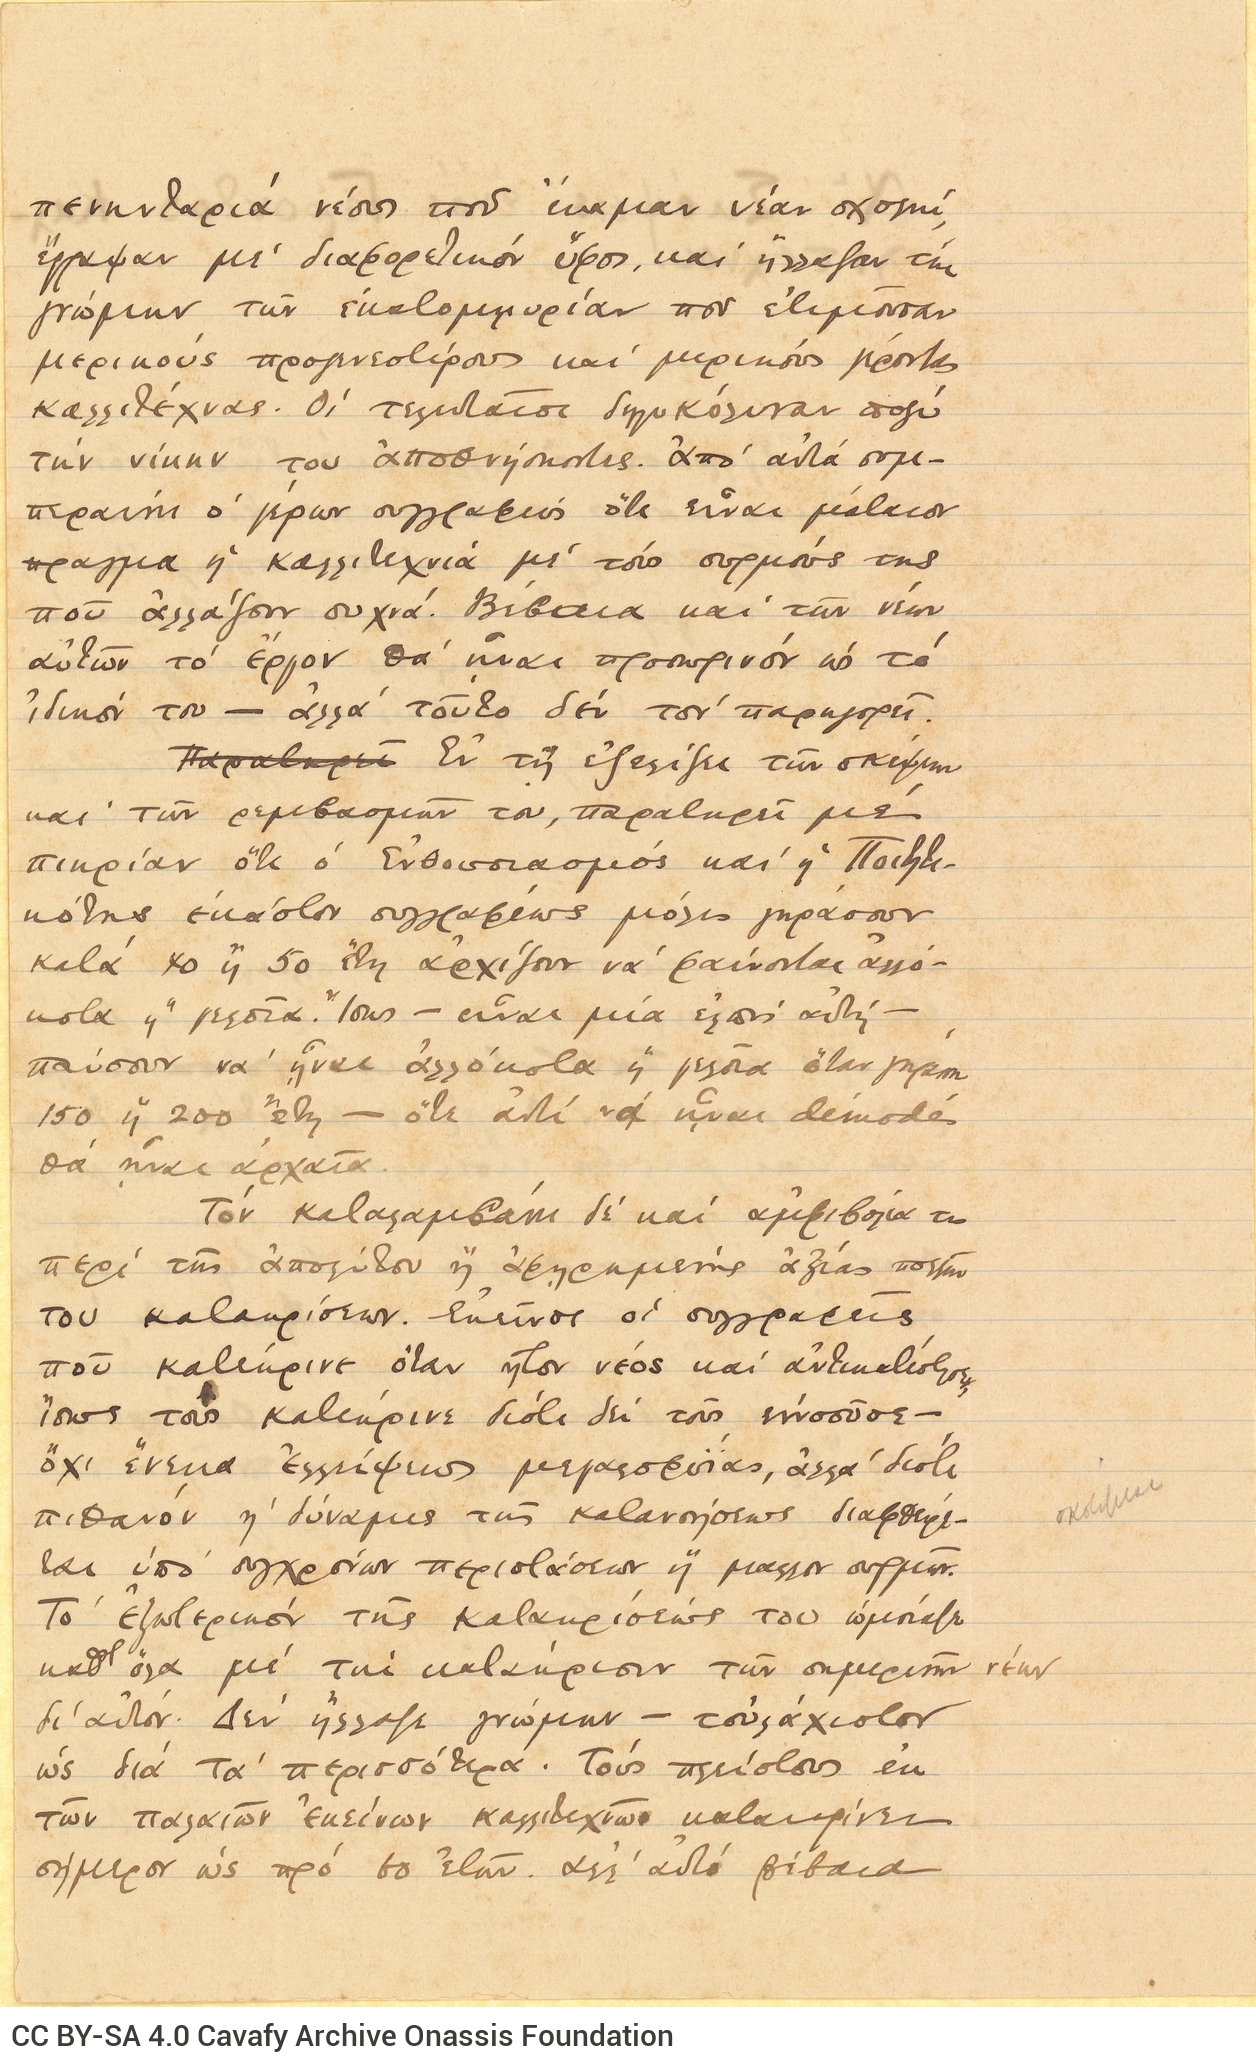 πενηνταριά νέους που έκαμαν νέαν σχολή,
έγραψαν με διαφορετικόν ύφος, και ήλλαξαν την
γνώμην των εκατομμυρίων που ετιμούσαν
μερικούς προγενεστέρους και μερικούς γέροντας
καλλιτέχνας. Οι τελευταίοι διηυκόλυναν πολύ
την νίκην του αποθνήσκοντες. Από αυτά συμ-
περαίνει ο γέρων συγγραφεύς ότι είναι μάταιον
πραγμα η καλλιτεχνία με τους συρμούς της
που αλλάζουν συχνά. Βέβαια και των νέων
αυτών το έργον θα ήναι προσωρινόν ως το
ιδικόν του — αλλά τούτο δεν τον παρηγορεί.
Παρατηρεί Εν τη εξελίξει των σκέψεων
και των ρεμβασμών του, παρατηρεί με
πικρίαν ότι ο Ενθουσιασμός και η Ποιητι-
κότης εκάστου συγγραφέως μόλις γηράσουν
κατά 40 ή 50 έτη αρχίζουν να φαίνονται αλλό-
κοτα ή γελοία. Ίσως — είναι μία ελπίς αυτή —
παύσουν να ήναι αλλόκοτα ή γελοία όταν γηράσουν
150 ή 200 έτη — ότε αντί να ήναι démodés
θα ήναι αρχαία.
Τον καταλαμβάνει δε και αμφιβολία τις
περί της απολύτου ή αφηρημένης αξίας πολλών
του κατακρίσεων. Εκείνοι οι συγγραφείς
που κατέκρινε όταν ήτον νέος και αντικατέστησε,
ίσως τους κατέκρινε διότι δεν τους εννοούσε —
όχι ένεκα ελλείψεως μεγαλοφυΐας, αλλά διότι
πιθανόν η δύναμις της κατανοήσεως διαφθείρε-
ται υπό συγχρόνων περιστάσεων ή μαλλον συρμών.
Το εξωτερικόν της κατακρίσεώς του ωμοίαζε
καθ' όλα με την κατάκρισιν των σημερινών νέων
δι' αυτόν. Δεν ήλλαξε γνώμην — τουλάχιστον
ως διά τα περισσότερα. Τους πλείστους εκ
των παλαιών εκείνων καλλιτεχνών κατακρίνει
σήμερον ως προ 60 ετών. αλλ' αυτό βέβαια
CC BY-SA 4.0 Cavafy Archive Onassis Foundation